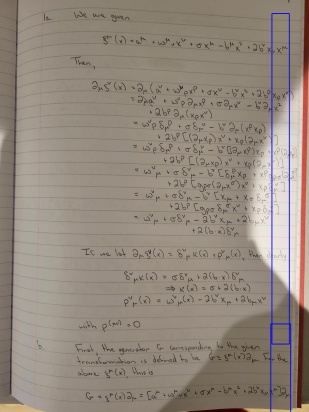 1a. We are given
ξ^μ(x) = a^μ + ω^μ_ν x^ν + σx^μ - b^μ x² + 2b^ν x_ν x^μ
Then,
∂_μ ξ^ν(x) = ∂_μ (a^ν + ω^ν_ρ x^ρ + σx^ν - b^ν x² + 2b^ρ x_ρ x^ν)
= ∂_μ a^ν + ω^ν_ρ ∂_μ x^ρ + σ∂_μ x^ν - b^ν ∂_μ x²
+ 2b^ρ ∂_μ (x_ρ x^ν)
= ω^ν_ρ δ^ρ_μ + σδ^ν_μ - b^ν ∂_μ (x^ρ x_ρ)
+ 2b^ρ [(∂_μ x_ρ) x^ν + x_ρ (∂_μ x^ν)]
= ω^ν_ρ δ^ρ_μ + σδ^ν_μ - b^ν [(∂_μ x^ρ) x_ρ + x^ρ (∂_μ x_ρ)]
+ 2b^ρ [(∂_μ x_ρ) x^ν + x_ρ (∂_μ x^ν)]
= ω^ν_μ + σδ^ν_μ - b^ν [δ^ρ_μ x_ρ
+ 2b^ρ [g_ρσ (∂_μ x^σ) x^ν + x_ρ δ^ν_μ]
= ω^ν_μ + σδ^ν_μ - b^ν [x_μ + x_σ δ^σ_μ]
+ 2b^ρ [g_ρσ δ^σ_μ x^ν + x_ρ δ^ν_μ]
= ω^ν_μ + σδ^ν_μ - 2b^ν x_μ + 2b_μ x^ν
+ 2(b·x) δ^ν_μ
If we let ∂_μ ξ^ν(x) = δ^ν_μ κ(x) + ρ^ν_μ(x), then clearly
δ^ν_μ κ(x) = σδ^ν_μ + 2(b·x) δ^ν_μ
⇒ κ(x) = σ + 2(b·x)
ρ^ν_μ(x) = ω^ν_μ(x) - 2b^ν x_μ + 2b_μ x^ν
with ρ^(μν) = 0
b. First, the generator G corresponding to the given
transformation is defined to be G = ξ^μ(x) ∂_μ. For the
above ξ^μ(x), this is
G = ξ^μ(x) ∂_μ = [a^μ + ω^μ_ν x^ν + σx^μ - b^μ x² + 2b^ν x_ν x^μ] ∂_μ